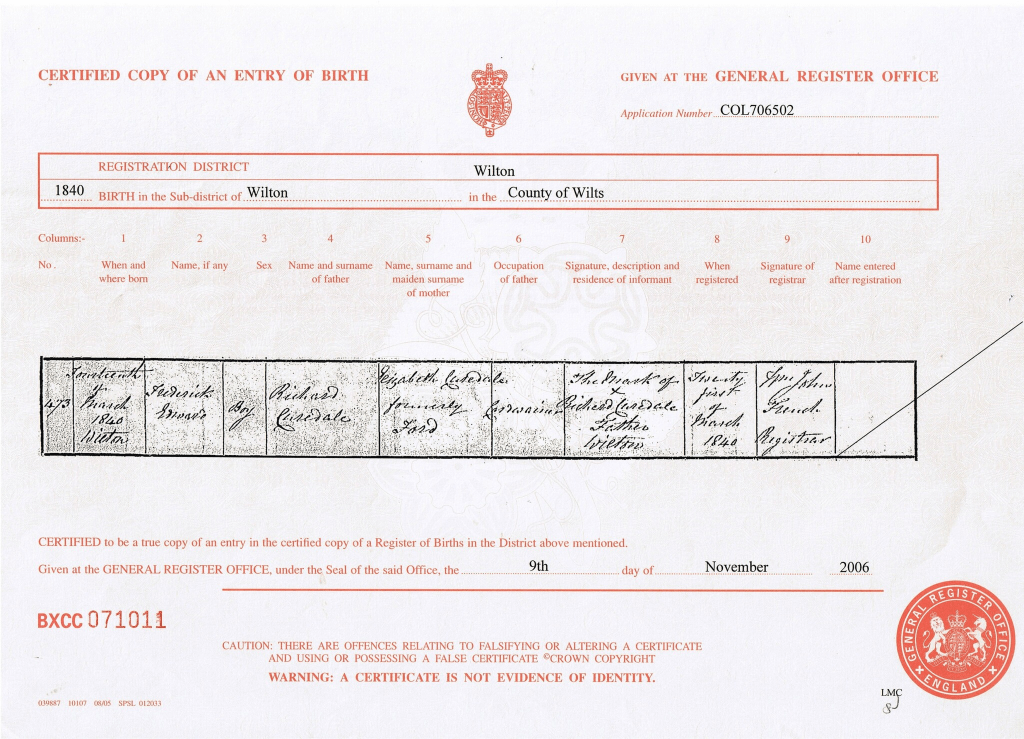 CERTIFIED COPY OF AN ENTRY OF BIRTH
GIVEN AT THE GENERAL REGISTER OFFICE
Application Number COL706502
REGISTRATION DISTRICT Wilton
1840 BIRTH in the Sub-district of Wilton in the County of Wilts
Columns:- 1 2 3 4 5 6 7 8 9 10
No. When and where born
Name, if any
Sex
Name and surname of father
Name, surname and maiden surname of mother
Occupation of father
Signature, description and residence of informant
When registered
Signature of registrar
Name entered after registration
473
Fourteenth
of
March
1840
Wilton
Frederick
Edward
Boy
Richard
Curedale
Elizabeth Curedale
formerly
Ford
Cordwainer
The Mark of
x
Richard Curedale
Father
Wilton
Twenty
first
of
March
1840
Wm John
French
Registrar
CERTIFIED to be a true copy of an entry in the certified copy of a Register of Births in the District above mentioned.
Given at the GENERAL REGISTER OFFICE, under the Seal of the said Office, the 9th day of November 2006
BXCC 071011
CAUTION: THERE ARE OFFENCES RELATING TO FALSIFYING OR ALTERING A CERTIFICATE
AND USING OR POSSESSING A FALSE CERTIFICATE ©CROWN COPYRIGHT
WARNING: A CERTIFICATE IS NOT EVIDENCE OF IDENTITY.
GENERAL REGISTER OFFICE
ENGLAND
LMC
039887 10107 08/05 SPSL 012033